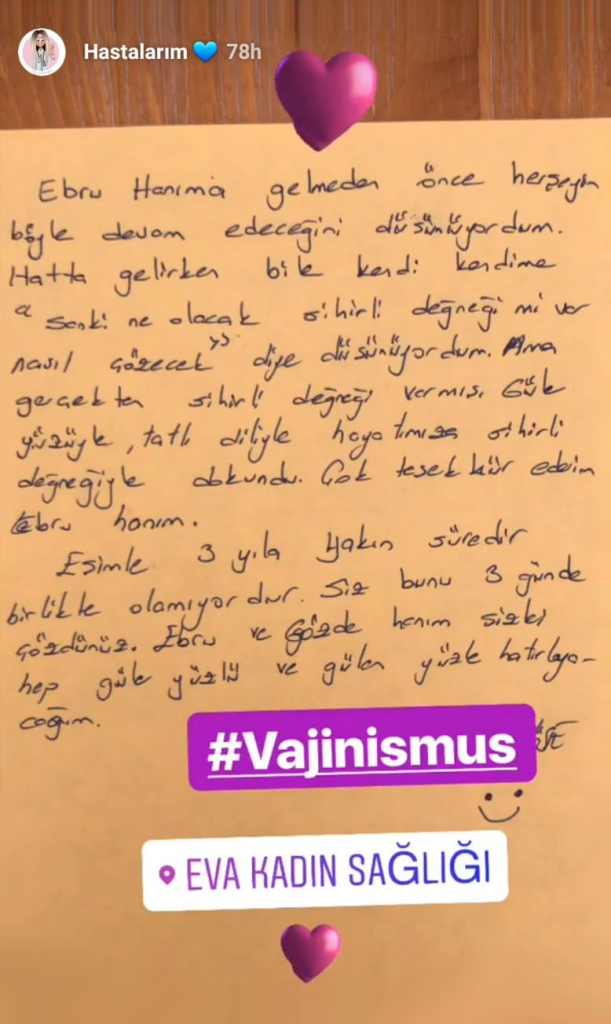 Hastalarım 78h
Ebru Hanıma gelmeden önce herşeyin
böyle devam edeceğini düşünüyordum.
Hatta gelirken bile kendi kendime
"sanki ne olacak sihirli değneği mi var
nasıl çözecek" diye düşünüyordum. Ama
gerçekten sihirli değneği varmış. Güler
yüzüyle, tatlı diliyle hayatımıza sihirli
değneğiyle dokundu. Çok teşekkür ederim
Ebru hanım.
Eşimle 3 yıla yakın süredir
birlikte olamıyorduk. Siz bunu 3 günde
çözdünüz. Ebru ve Gözde hanım sizleri
hep güler yüzlü ve güler yüzle hatırlaya-
cağım.
#Vajinismus
EVA KADIN SAĞLIĞI